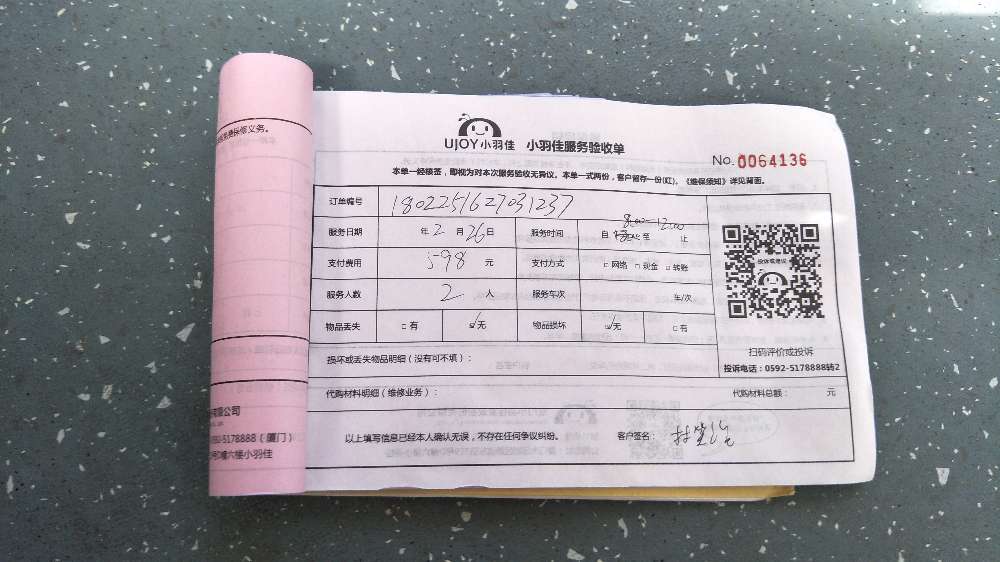 免费保修义务。
UJOY小羽佳 小羽佳服务验收单
No. 0064136
本单一经核签，即视为对本次服务验收无异议。本单一式两份，客户留存一份(红)。《维保须知》详见背面。
订单编号 1802251627031237
服务日期 年 2 月 26 日 服务时间 自 8:00-12:00 至 止
支付费用 598 元 支付方式 □ 网络 □ 现金 □ 转账
服务人数 2 人 服务车次 车/次
物品丢失 □ 有 ☑ 无 物品损坏 ☑ 无 □ 有
投诉或建议
扫码评价或投诉
投诉电话：0592-5178888转2
损坏或丢失物品明细（没有可不填）：
代购材料明细（维修业务）： 代购材料总额： 元
以上填写信息已经本人确认无误，不存在任何争议纠纷。 客户签名：
有限公司
-5178888（厦门）
六楼小羽佳